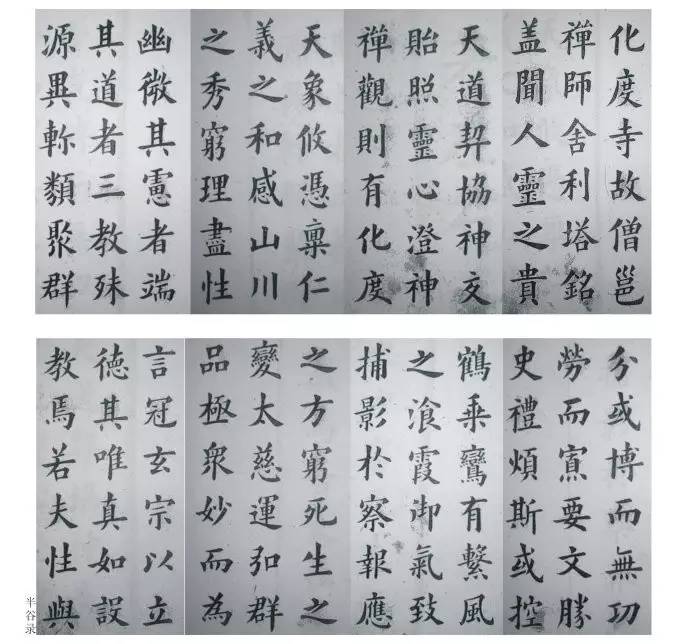 化度寺故僧邕
禪師舍利塔銘
盖聞人靈之貴
天道契協神交
貽照靈心澄神
禅觀則有化度
天象攸憑稟仁
義之和感山川
之秀窮理盡性
幽微其憲者端
其道者三教殊
源異軫類聚群
分或博而無功
勞而寡要文勝
史禮煩斯或控
鶴乗鸞有繫風
之飡霞御氣致
捕影於察報應
之方窮死生之
變太慈運弘群
品極衆妙而為
言冠玄宗以立
德其唯真如設
教焉若夫性與
半谷录